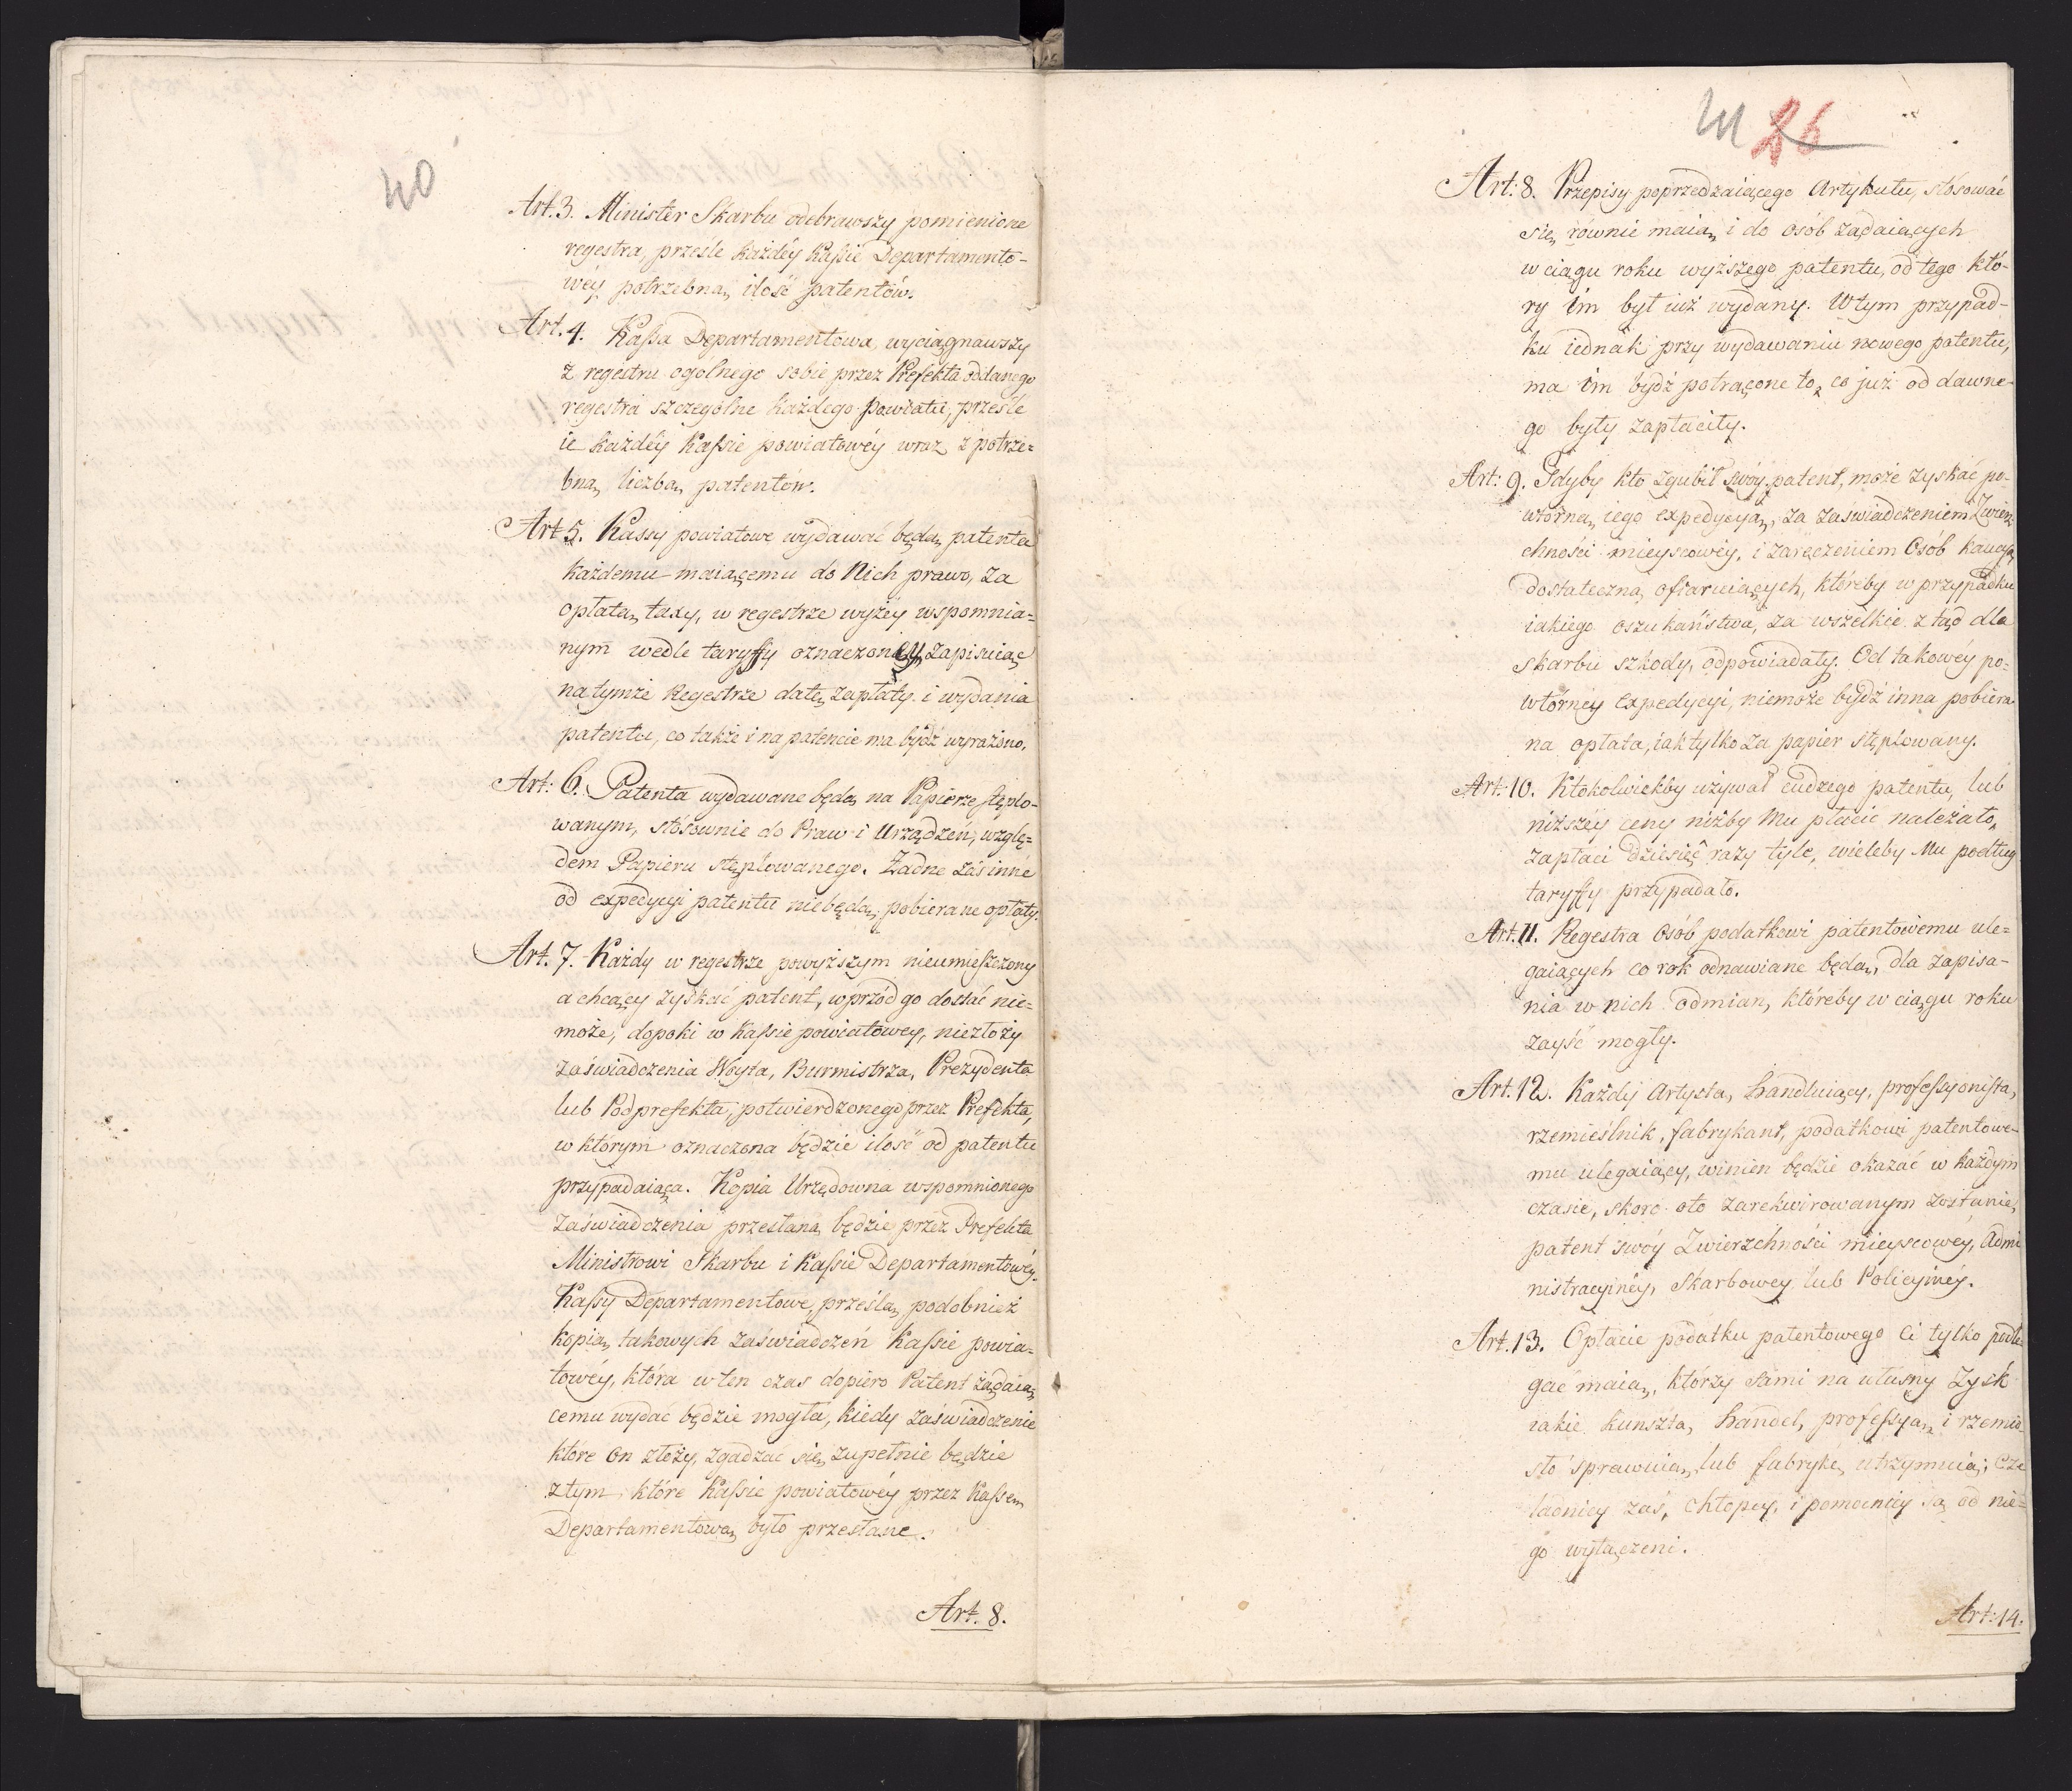 40
Art. 3. Minister Skarbu odebrawszy pomienione
regestra, prześle każdéy Kassie Departamento-
wéy potrzebną ilość patentów.
Art. 4. Kassa Departamentowa, wyciągnąwszy
z regestru ogolnego sobie przez Prefekta oddanego
regestra szczególne każdego powiatu, prześle
ie każdéy Kassie powiatowéy wraz z potrze=
bną liczbą patentów.
Art 5. Kassy powiatowe wydawać będą patenta
każdemu maiącemu do Nich prawo, za
opłatą taxy, w regestrze wyżéy wspomnia=
nym wedle taryffy oznaczonéy, zapisuiąc
na tymże Regestrze datę zapłaty i wydania
patentu, co także i na patencie ma bydź wyrażono.
Art: 6. Patenta wydawane będą na Papierze stęplo-
wanym, stósownie do Praw i Urządzeń, wzglę=
dem Papieru stęplowanego. Żadne zaś inne
od expedycyi patentu niebędą pobierane opłaty.
Art. 7. Każdy w regestrze powyższym nieumieszczony
a chcący zyskać patent, wprzód go dostać nie=
może, dopoki w Kassie powiatowey, niezłoży
zaświadczenia Woyta, Burmistrza, Prezydenta
lub Podprefekta, potwierdzonego przez Prefekta,
w którym oznaczona będzie ilość od patentu
przypadaiąca. Kopia Urzędowna wspomnionego
zaświadczenia przesłana będzie przez Prefekta
Ministrowi Skarbu i Kassie Departamentowéy.
Kassy Departamentowe, prześlą podobnież
kopią takowych zaświadczeń Kassie powia=
towéy, która w ten czas dopiero Patent żądaią
cemu wydać będzie mogła, kiedy zaświadczenie
które On złoży, zgadzać się zupełnie będzie
z tym które Kassie powiatowéy przez Kassę
Departamentową było przesłane.
Art. 8.
41 26
Art: 8. Przepisy poprzedzaiącego Artykułu, stósować
się równie maią i do osób żądaiących
w ciągu roku wyższego patentu, od tego któ-
ry im był iuż wydany. W tym przypad-
ku iednak przy wydawaniu nowego patentu,
ma im bydź potrącone to, co już od dawne-
go były zapłaciły.
Art: 9. Gdyby kto zgubił swóy patent, może zyskać po-
wtórną iego expedycyą, za zaświadczeniem Zwierz-
chności mieyscowéy, i zaręczeniem Osób kaucyą
dostateczną ofiaruiących, któreby w przypadku
iakiego oszukaństwa, za wszelkie z tąd dla
skarbu szkody, odpowiadały. Od takowéy po-
wtórnéy expedycyi, niemoże bydź inna pobiera-
na opłata, iak tylko za papier stęplowany.
Art: 10. Ktokolwiekby używał cudzego patentu, lub
niższéy ceny niżby Mu płacić należało,
zapłaci dziesięć razy tyle, wieleby Mu podług
taryffy przypadało.
Art. 11. Regestra Osób podatkowi patentowemu ule=
gaiących co rok odnawiane będą, dla zapisa-
nia w nich odmian, któreby w ciągu roku
zayść mogły.
Art. 12. Każdy Artysta, handluiący, professyonista,
rzemieślnik, fabrykant, podatkowi patentowe-
mu ulegaiący, winien będzie okazać w każdym
czasie, skoro oto zarekwirowanym zostanie,
patent swóy Zwierzchności mieyscowéy, Admi
nistracyinéy, Skarbowey lub Policyinéy.
Art. 13. Opłacie podatku patentowego Ci tylko podle-
gać maią, którzy sami na własny Zysk
iakie kunszta, handel, professyą, i rzemio-
sło sprawuią, lub fabrykę utrzymuią; Cze
ladnicy zaś, chłopcy, i pomocnicy są od nie=
go wyłączeni.
Art: 14.